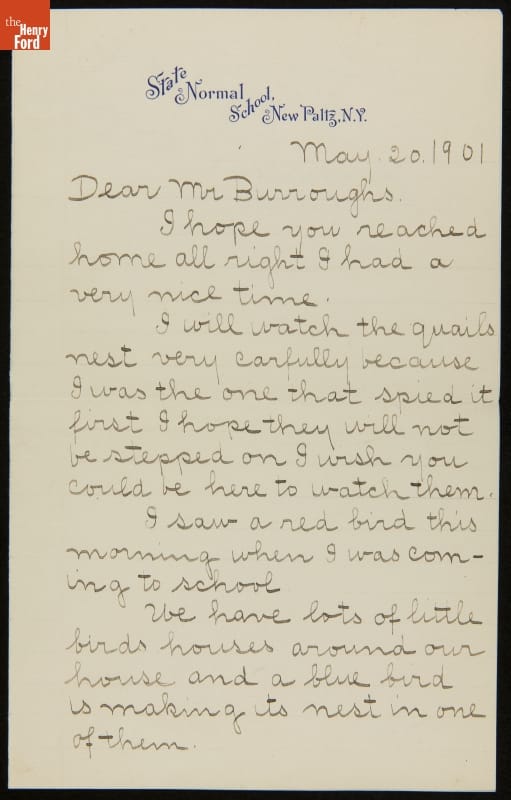 the
Henry
Ford
State Normal School, New Paltz, N.Y.
May. 20. 1901
Dear Mr Burroughs.
I hope you reached
home all right I had a
very nice time.
I will watch the quails
nest very carfully because
I was the one that spied it
first I hope they will not
be stepped on I wish you
could be here to watch them.
I saw a red bird this
morning when I was com-
ing to school
We have lots of little
birds houses around our
house and a blue bird
is making its nest in one
of them.